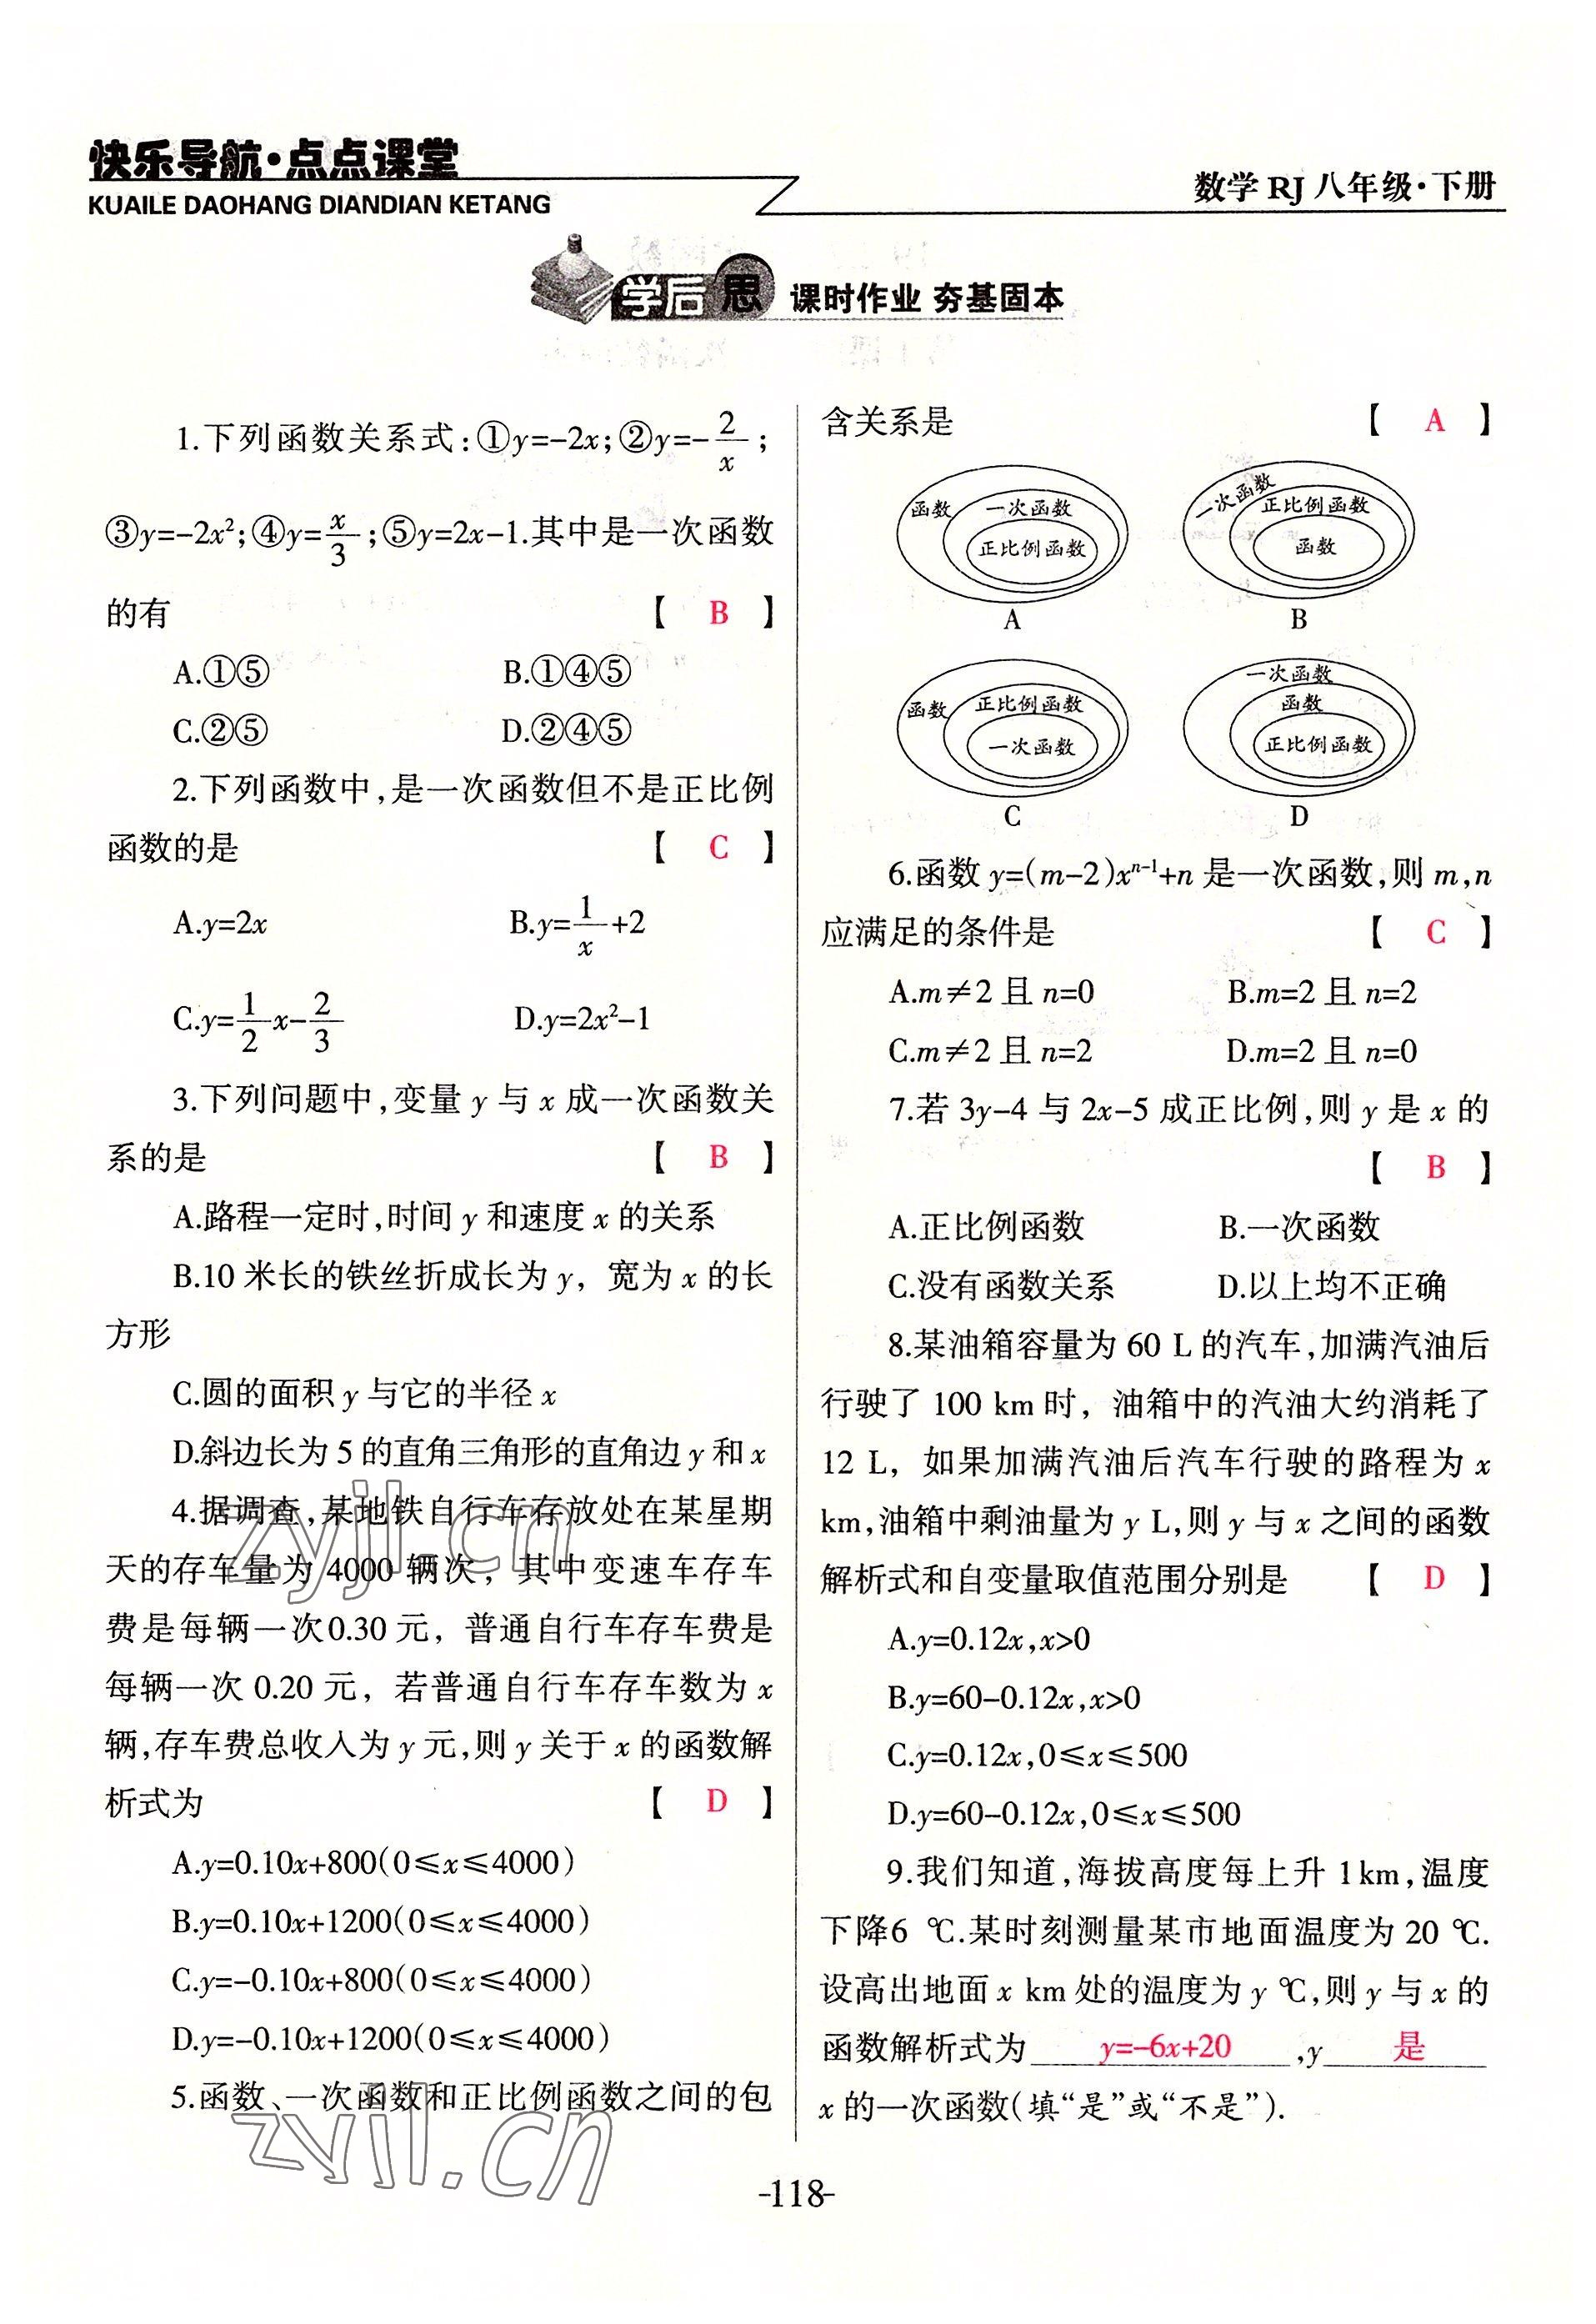 快乐导航·点点课堂
KUAILE DAOHANG DIANDIAN KETANG
数学 RJ 八年级·下册
学后思 课时作业 夯基固本
1.下列函数关系式:①y=-2x;②y=-2/x;
③y=-2x²;④y=x/3;⑤y=2x-1.其中是一次函数
的有 【 B 】
A.①⑤ B.①④⑤
C.②⑤ D.②④⑤
2.下列函数中,是一次函数但不是正比例
函数的是 【 C 】
A.y=2x B.y=1/x+2
C.y=1/2x-2/3 D.y=2x²-1
3.下列问题中,变量 y 与 x 成一次函数关
系的是 【 B 】
A.路程一定时,时间 y 和速度 x 的关系
B.10 米长的铁丝折成长为 y, 宽为 x 的长
方形
C.圆的面积 y 与它的半径 x
D.斜边长为 5 的直角三角形的直角边 y 和 x
4.据调查,某地铁自行车存放处在某星期
天的存车量为 4000 辆次, 其中变速车存车
费是每辆一次0.30 元, 普通自行车存车费是
每辆一次 0.20 元, 若普通自行车存车数为 x
辆,存车费总收入为 y 元,则 y 关于 x 的函数解
析式为 【 D 】
A.y=0.10x+800(0≤x≤4000)
B.y=0.10x+1200(0≤x≤4000)
C.y=-0.10x+800(0≤x≤4000)
D.y=-0.10x+1200(0≤x≤4000)
5.函数、一次函数和正比例函数之间的包
含关系是 【 A 】
函数 一次函数 正比例函数
A
一次函数 正比例函数 函数
B
函数 正比例函数 一次函数
C
一次函数 函数 正比例函数
D
6.函数 y=(m-2)xⁿ⁻¹+n 是一次函数,则 m,n
应满足的条件是 【 C 】
A.m≠2 且 n=0 B.m=2 且 n=2
C.m≠2 且 n=2 D.m=2 且 n=0
7.若 3y-4 与 2x-5 成正比例,则 y 是 x 的
【 B 】
A.正比例函数 B.一次函数
C.没有函数关系 D.以上均不正确
8.某油箱容量为 60 L 的汽车,加满汽油后
行驶了 100 km 时, 油箱中的汽油大约消耗了
12 L, 如果加满汽油后汽车行驶的路程为 x
km,油箱中剩油量为 y L,则 y 与 x 之间的函数
解析式和自变量取值范围分别是 【 D 】
A.y=0.12x,x>0
B.y=60-0.12x,x>0
C.y=0.12x,0≤x≤500
D.y=60-0.12x,0≤x≤500
9.我们知道,海拔高度每上升 1km,温度
下降6 ℃.某时刻测量某市地面温度为 20 ℃.
设高出地面 x km 处的温度为 y ℃,则 y 与 x 的
函数解析式为 y=-6x+20 ,y 是
x 的一次函数(填“是”或“不是”).
-118-
zyjl.cn
zyjl.cn